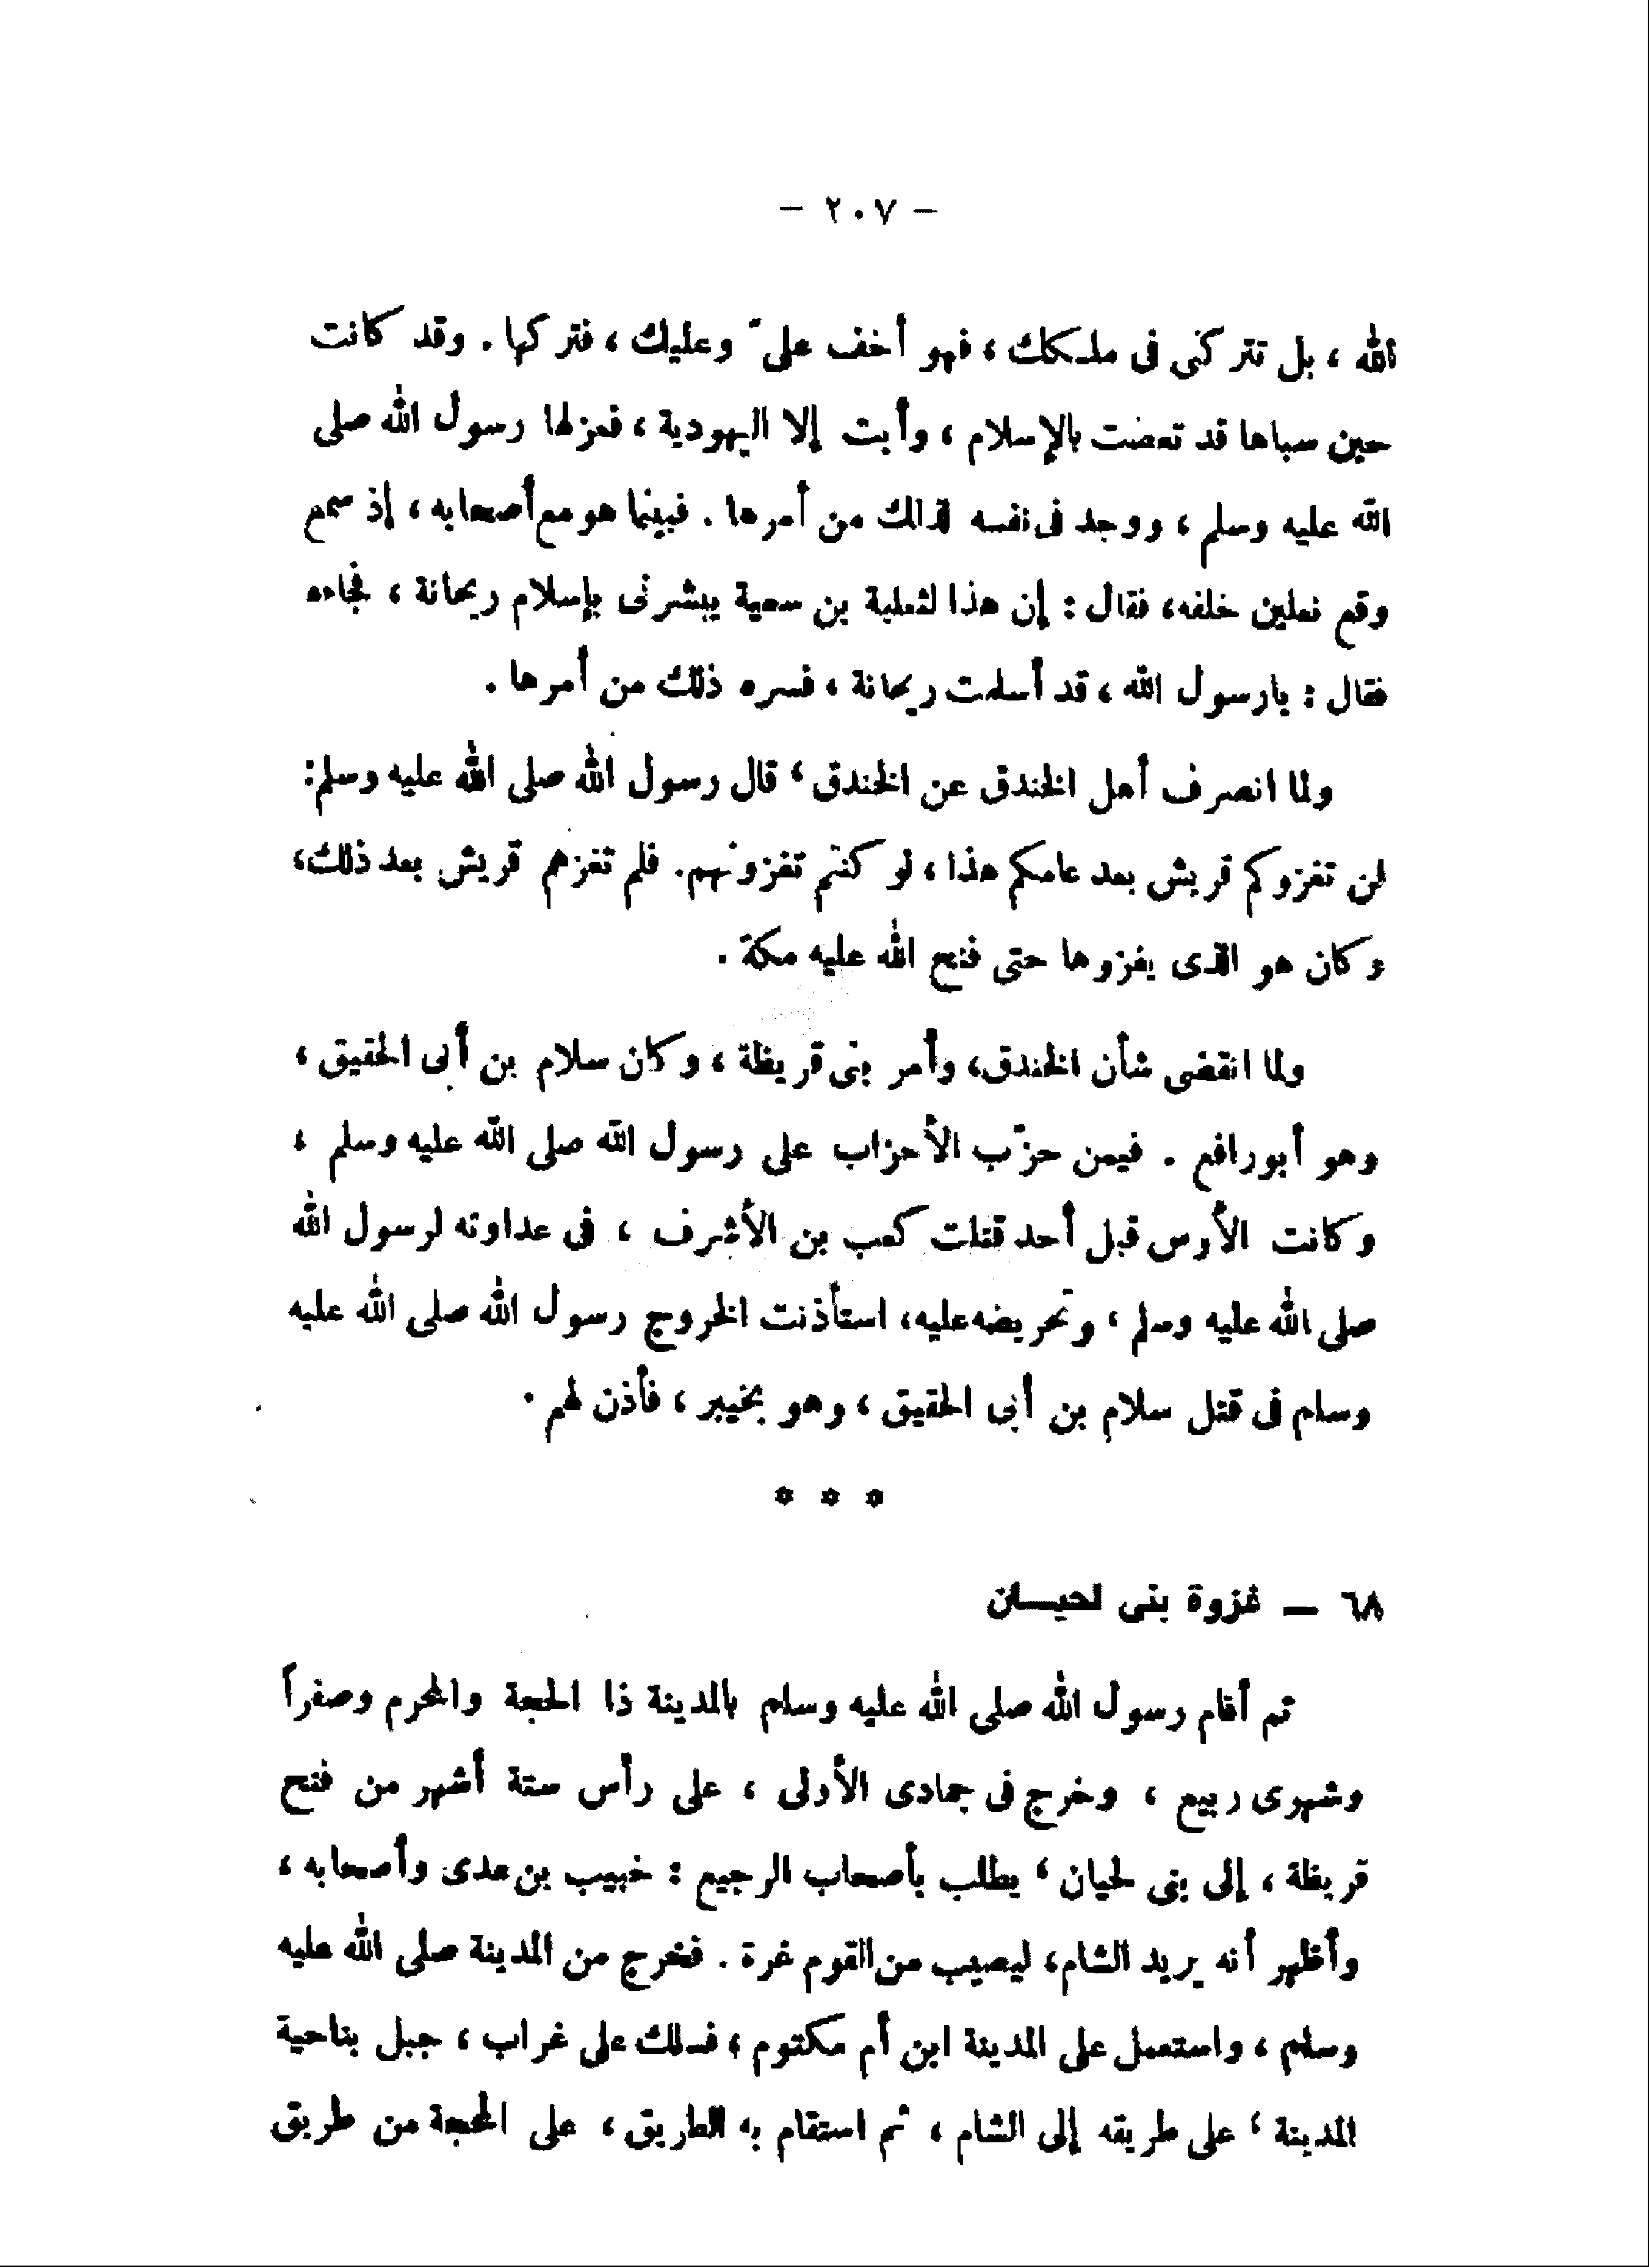 — ٢٠٧ —
الله ، بل تتركنى فى ملكك ، فهو أخف علىّ وعليك ، فتركها . وقد كانت
حين سباها قد تعضت بالإسلام ، وأبت إلا اليهودية ، فعزلها رسول الله صلى
الله عليه وسلم ، ووجد فى نفسه لذلك من أمرها . فبينما هو مع أصحابه ، إذ سمع
وقع نعلين خلفه، فقال : إن هذا لثعلبة بن سعية يبشرنى بإسلام ريحانة ، فجاءه
فقال : يارسول الله ، قد أسلمت ريحانة ، فسره ذلك من أمرها .
ولما انصرف أهل الخندق عن الخندق ، قال رسول الله صلى الله عليه وسلم:
لن تغزوكم قريش بعد عامكم هذا ، لو كنتم تغزونهم. فلم تغزهم قريش بعد ذلك،
وكان هو الذى يغزوها حتى فتح الله عليه مكة .
ولما انقضى شأن الخندق، وأمر بنى قريظة ، وكان سلام بن أبى الحقيق ،
وهو أبورافع . فيمن حزّب الأحزاب على رسول الله صلى الله عليه وسلم ،
وكانت الأوس قبل أحد قتلت كعب بن الأشرف ، فى عداوته لرسول الله
صلى الله عليه وسلم ، وتحريضه عليه، استأذنت الخروج رسول الله صلى الله عليه
وسلم فى قتل سلام بن أبى الحقيق ، وهو بخيبر ، فأذن لهم .
* * *
٦٨ — غزوة بنى لحيـــان
ثم أقام رسول الله صلى الله عليه وسلم بالمدينة ذا الحجة والمحرم وصفراً
وشهرى ربيع ، وخرج فى جمادى الأولى ، على رأس ستة أشهر من فتح
قريظة ، إلى بنى لحيان ، يطلب بأصحاب الرجيع : خبيب بن عدى وأصحابه ،
وأظهر أنه يريد الشام، ليصيب من القوم غرة . فخرج من المدينة صلى الله عليه
وسلم ، واستعمل على المدينة ابن أم مكتوم ، فسلك على غراب ، جبل بناحية
المدينة ، على طريقه إلى الشام ، ثم استقام به الطريق ، على المحجة من طريق